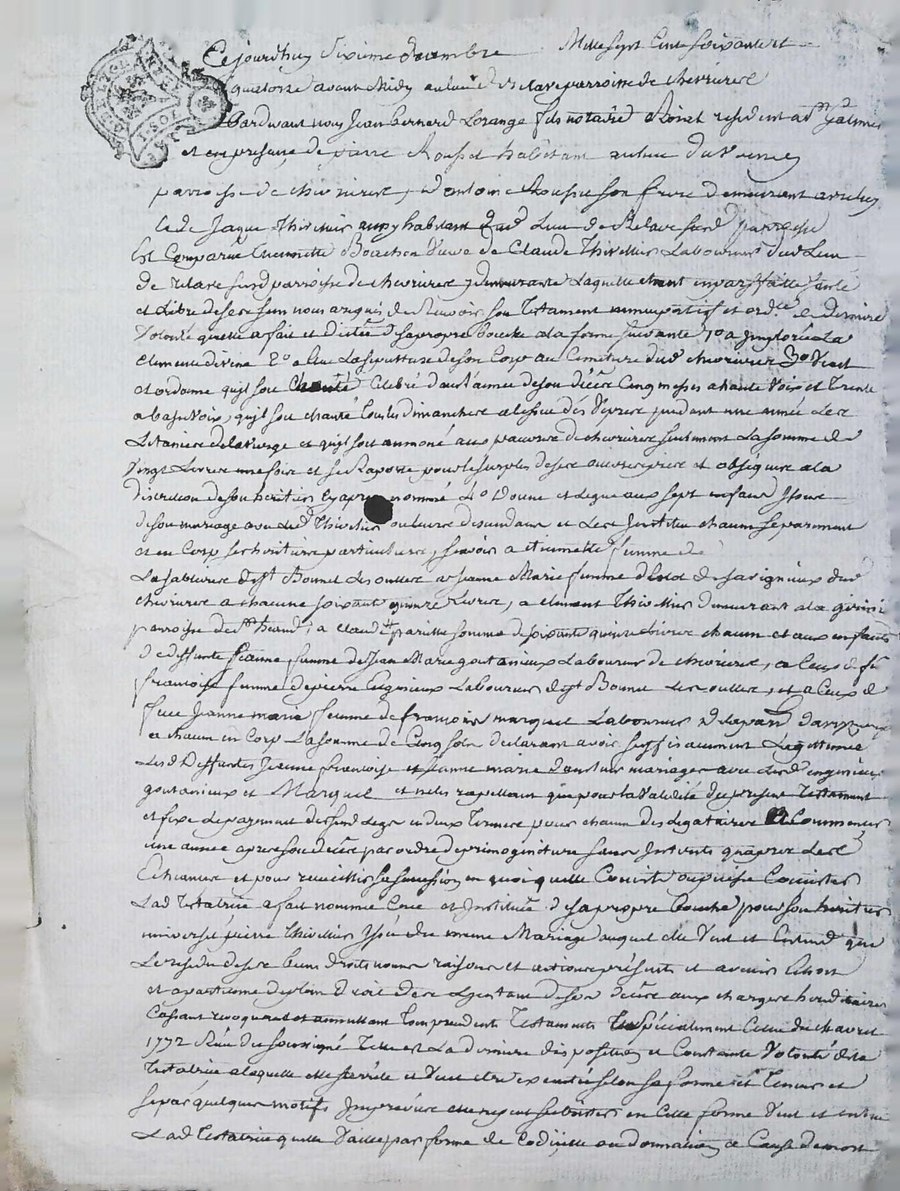 Cejourdhuy sixieme decembre Mille sept Cent soixante et
quatorze avant Midy au lieu de relave parroisse de chevrieres
Pardevant nous Jean Bernard Lorange fils notaire Roial resident a St galmier
et en presence de pierre Rousset habitant au lieu du
parroisse de chevrieres, et antoine Rousset son frere demeurant
de Jaque Thivillier aussy habitant dud lieu de Relave susd parroisse
Est Comparue Etiennette Bouchon Veuve de Claude Thivillier Laboureur dud Lieu
de relave susd parroisse de chevrieres y demeurante Laquelle etant en parffaitte santé
et Libre de ses sens nous a requis de Recevoir son Testament nuncupatif et ord.re de derniere
Volonté quelle a fait et dicté de sa propre bouche a la forme suivante 1o a Imploré La
clemence divine 2o a elue La sepulture de son Corp au Cimetiere dud chevrieres 3o Veut
et ordonne quil soit Celebré dans lannée de son décès Cinq messes a haute Voix et Trente
a basse Voix, quil soit chanté tous les dimanches a lissue des Vepres pendant une année Les
Litanies de la Vierge et quil soit aumoné aux pauvres de chevrieres seulement La somme de
Vingt Livres une fois et se Raporte pour le surplus de ses oeuvres pies et obseques a la
discretion de son heritier cy apres nommé 4o Donne et Legue aux sept enfans
de son mariage avec led Thivillier ou leurs desendans et Les Institue chacun separement
et en Corp ses heritiers particuliers, scavoir a etiennette femme de
La sabliere de St Bonnet Les oulles a Jeanne Marie femme de savigneux dud
chevrieres a chacune soixante quinze Livres, a clement Thivillier demeurant a la
parroisse de St heand, a Claude pareille somme de soixante quinze Livres chacun et aux enfants
de deffunte Jeanne femme de Jean Marie goutanieux Laboureur de chevrieres, a Ceux de
francoise femme de pierre enginieux Laboureur de St Bonnet Les oulles, et a Ceux de
Jeanne marie femme de francois marquet Laboureur
a chacun en Corp La somme de Cinq sols declarant avoir suffisamment Legitimé
Lesd Deffuntes Jeanne francoise et Jeanne marie dans leur mariages avec Lesd enginieux
goutanieux et Marquet et ne les rapellant que pour la Validité du present Testament
et fixe Le payement desd Legs en deux Termes pour chacun des Legataires a Commencer
une annee apres son décès par ordre de primogeniture sans Interets quapres Les
Echeances et pour recueillir sa sucession en quoi quelle Consiste ou puisse Consister
Lad Testatrice a fait nommé Crée et Institué de sa propre bouche pour son heritier
universel pierre Thivillier Issu du meme Mariage auquel elle Veut et Entend que
Le residu de ses biens droits noms raisons et actions présents et avenir Echoit
et apartienne de plain droit des Linstant de son décès aux charges hereditaires
Cassant revoquant et annullant Tous precedents Testaments specialement Celui du avril
1772 Reçu du soussigné Telle est La derniere disposition et Constante Volonté de la
Testatrice a laquelle elle sarrete et Veut etre executée selon sa forme et Teneur et
si par quelques motifs Imprevus elle ne peut subsister en Cette forme Veut et entend
Lad Testatrice quelle Vaille par forme de Codicille ou donnation a Cause de mort